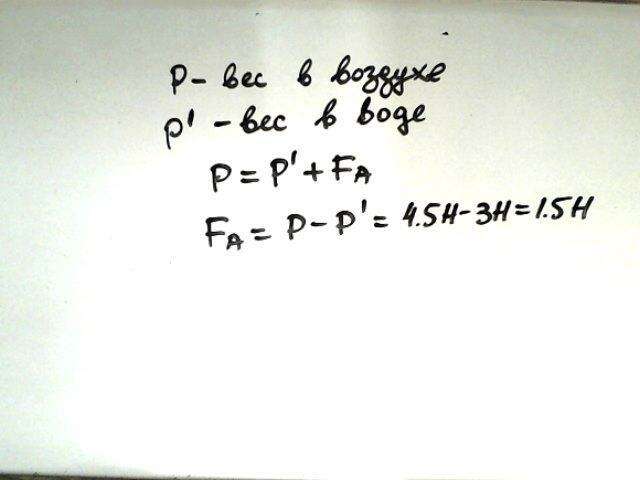 P - вес в воздухе
P' - вес в воде
P = P' + FA
FA = P - P' = 4.5Н - 3Н = 1.5Н